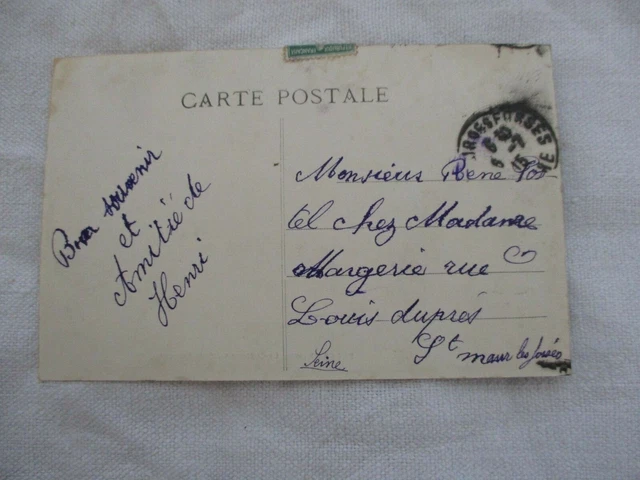 CARTE POSTALE
Bon souvenir
et
Amitié de
Henri
Monsieur Rene
tel chez Madame
Margerie rue
Louis duprés
St maur les fossés
Seine